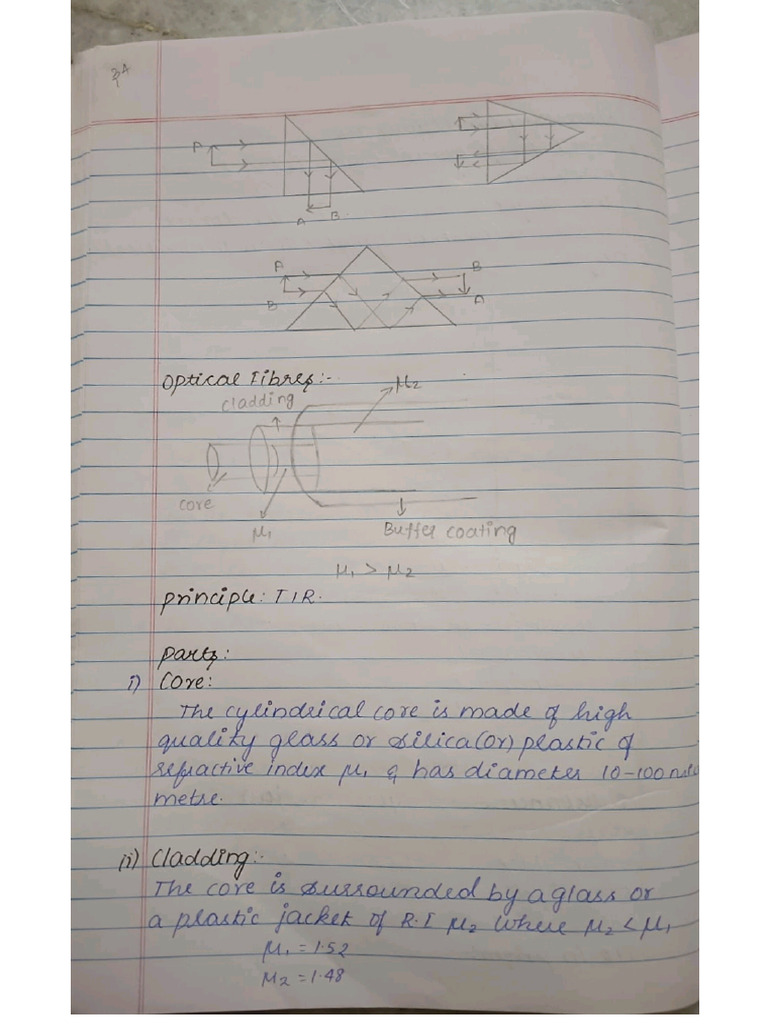 A
A B
A B
B A
Optical Fibres:-
μ2
cladding
core
μ1 Buffer coating
μ1 > μ2
principle: TIR.
parts:
i) Core:
The cylindrical core is made of high
quality glass or silica (or) plastic of
refractive index μ1 & has diameter 10-100
metre.
(ii) Cladding:-
The core is surrounded by a glass or
a plastic jacket of R.I μ2 where μ2 < μ1
μ1 = 1.52
μ2 = 1.48